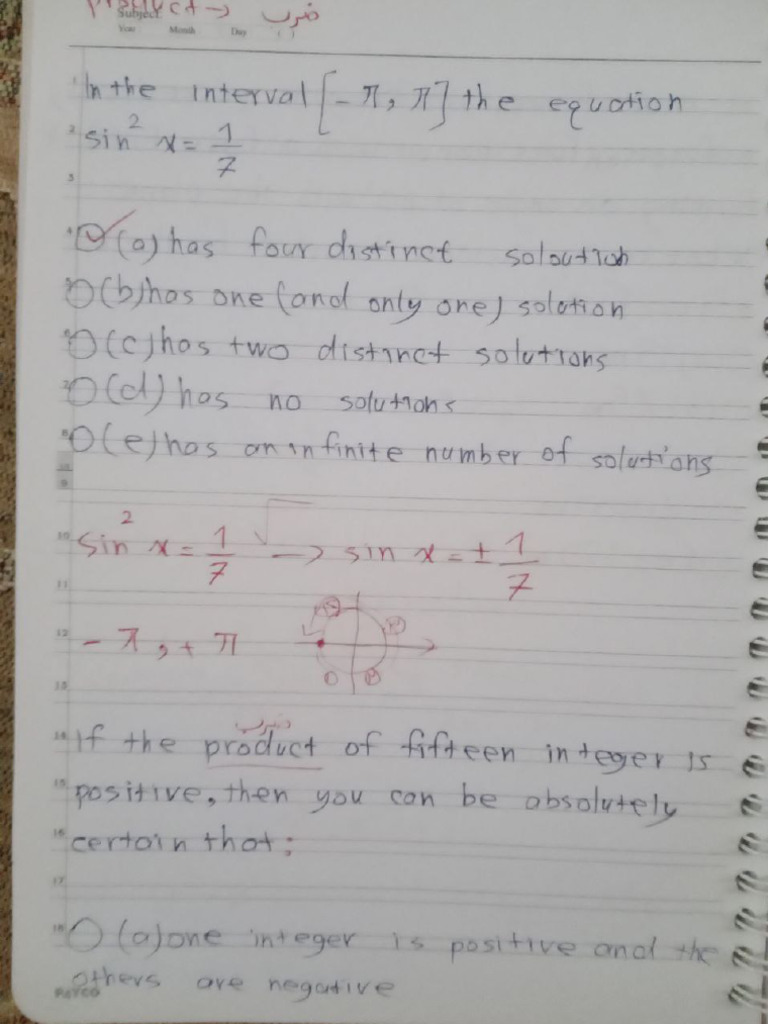 product → ضرب
Subject:
Year Month Day
In the interval [-π, π] the equation
sin² x = 1/7
(a) has four distinct soloution
(b) has one (and only one) solotion
(c) has two distinct solutions
(d) has no solutions
(e) has an infinite number of solutions
sin² x = 1/7 √ → sin x = ± 1/7
-π, +π
ضرب
If the product of fifteen integer is
positive, then you can be absolutely
certain that:
(a) one integer is positive and the
others are negative